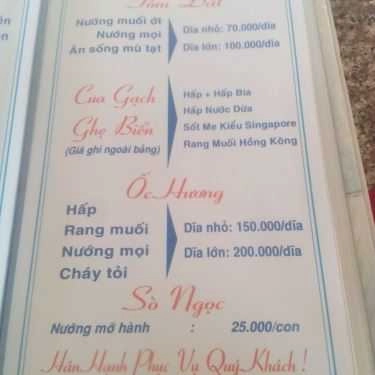 Nướng muối ớt
Nướng mọi
Ăn sống mù tạt
Dĩa nhỏ: 70.000/dĩa
Dĩa lớn: 100.000/dĩa
Cua Gạch
Ghẹ Biển
(Giá ghi ngoài bảng)
Hấp + Hấp Bia
Hấp Nước Dừa
Sốt Me Kiểu Singapore
Rang Muối Hồng Kông
Ốc Hương
Hấp
Rang muối
Nướng mọi
Cháy tỏi
Dĩa nhỏ: 150.000/dĩa
Dĩa lớn: 200.000/dĩa
Sò Ngọc
Nướng mỡ hành : 25.000/con
Hân Hạnh Phục Vụ Quý Khách !